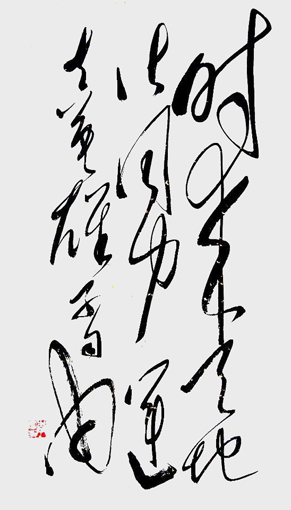 时来天地
皆同力運
去英雄不自由